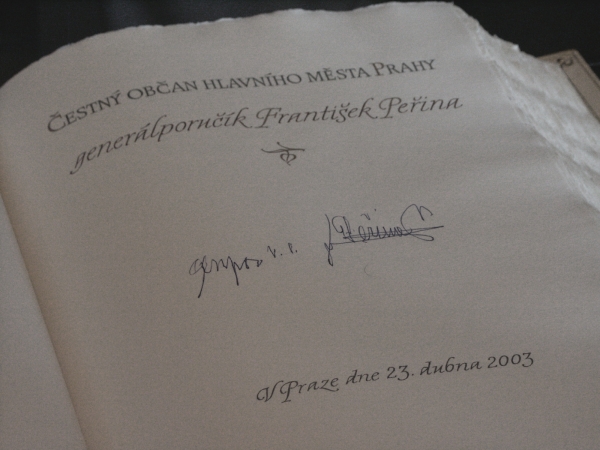 Čestný občan hlavního města Prahy
generálporučík František Peřina
genpor v. v. Peřina
V Praze dne 23. dubna 2003